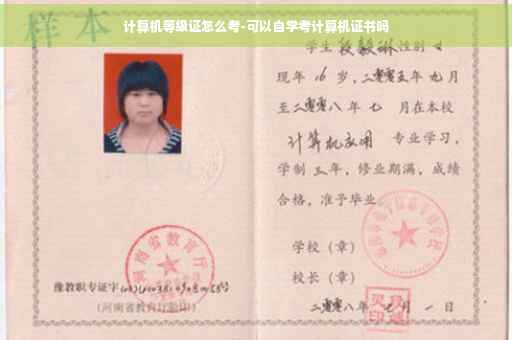 计算机等级证怎么考-可以自学考计算机证书吗
样本
学生段毅琳性别女
现年16岁,二零零五年九月
至二零零八年七月在本校
计算机应用 专业学习,
学制三年,修业期满,成绩
合格,准予毕业
学校(章)
校长(章)
二零零八年七月一日
河南省教育厅
豫教职专证字
(河南省教育厅验印)